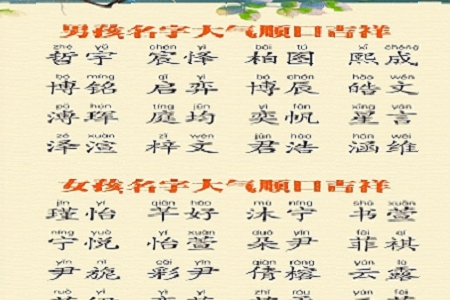 男孩名字大气顺口吉祥
zhé yǔ chén yì bǎi tú xī chéng
哲宇 宸怿 柏图 熙成
bó míng qǐ yì bó chén hào wén
博铭 启弈 博辰 皓文
pǔ huī tíng jūn yì fān xīng yán
溥珲 庭均 奕帆 星言
zé xuàn zǐ wén jūn hào hán wéi
泽渲 梓文 君浩 涵维
女孩名字大气顺口吉祥
jǐn yí qiān hǎo mù níng shū xuān
瑾怡 芊好 沐宁 书萱
níng yuè yí xuān duǒ yǐn fēi qí
宁悦 怡萱 朵尹 菲祺
yǐn nǐ cǎi yǐn qiàn róng yún lù
尹旎 彩尹 倩榕 云露